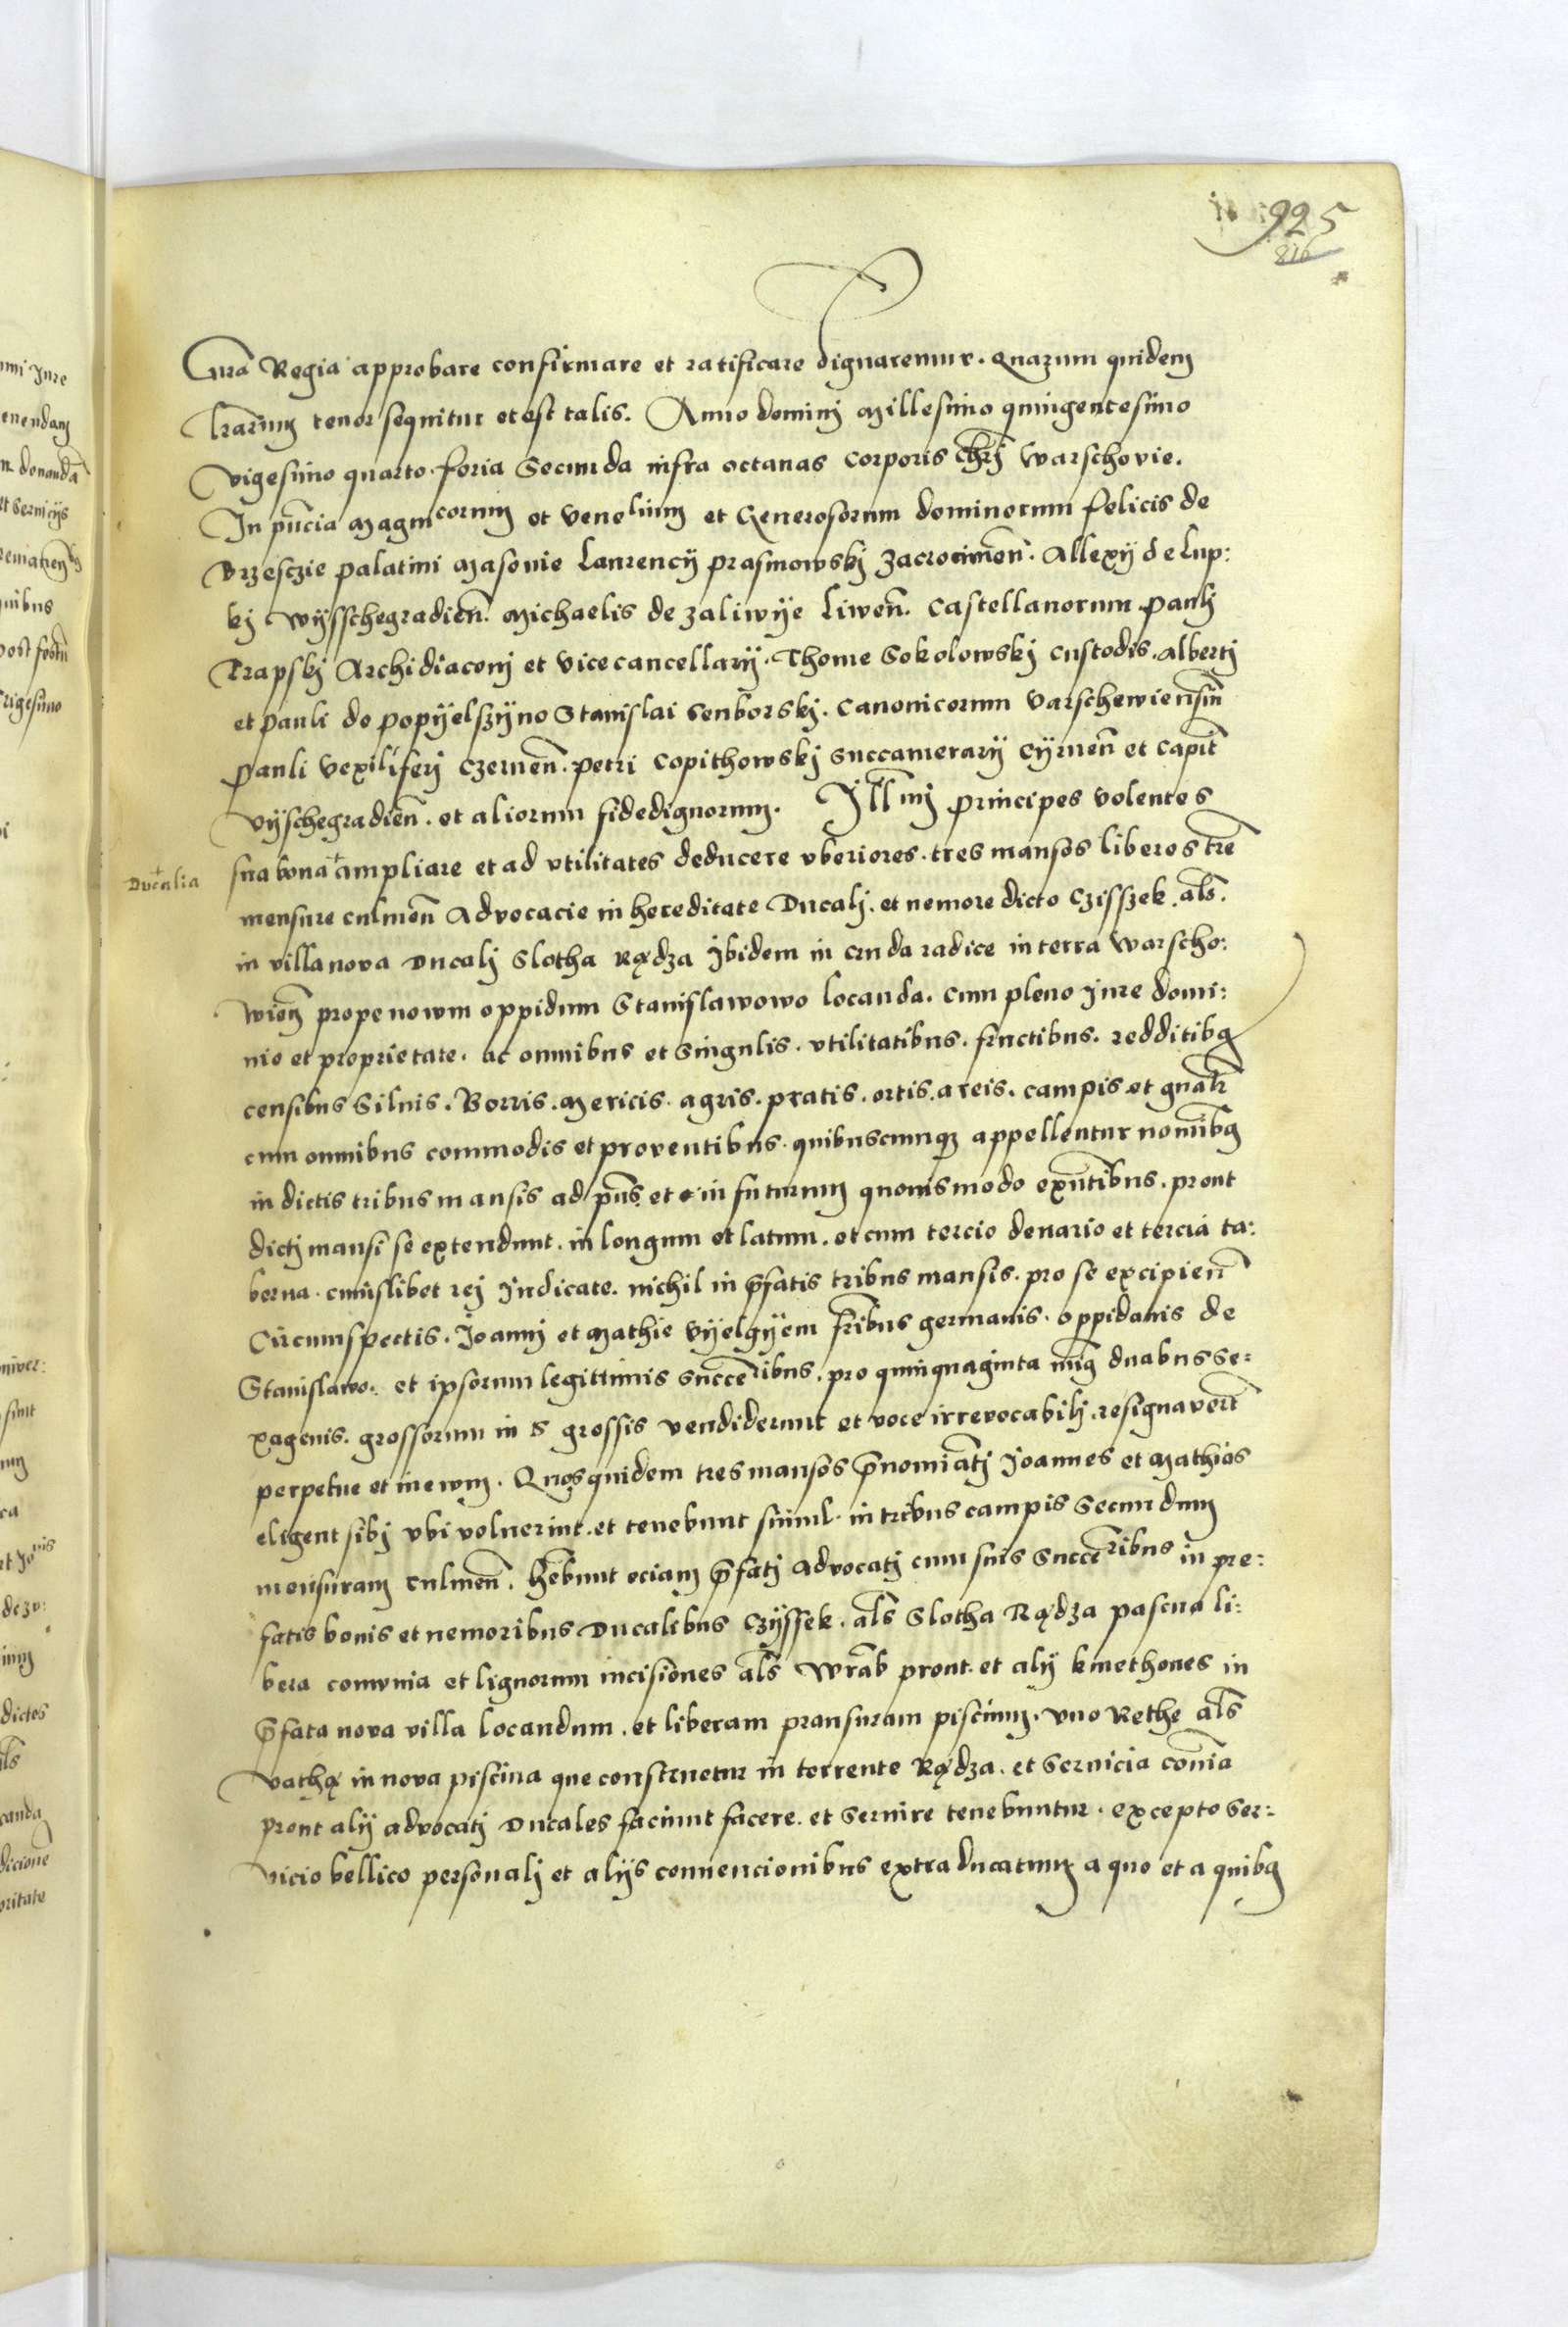 925
816
Gra Regia approbare confirmare et ratificare dignaremur. Quarum quidem
lrarum tenor sequitur et est talis. Anno dominj Millesimo quingentesimo
vigesimo quarto. feria Secunda infra octauas Corporis chrj Warschovie.
In pncia Magnicorum et Venelium et Generosorum dominorum felicis de
Brzesczie palatini Masouie Laurencij prasmowskj Zacrocimen. Allexij de Lup:
kj Wijsschegradien. Michaelis de Zaliwije Liwen. Castellanorum paulj
Trapskj Archidiaconj et Vicecancellarij. Thome Sokolowskj Custodis. Albertj
et pauli de popijelszijno Stanislai Senborskj. Canonicorum Varschewiensium
pauli Vexiliferj Czernen. petri Copithowskj Succamerarij Cijrnen et Capit
Vijschegradien. et aliorum fidedignorum. Illmj principes volentes
Ducalia
sua bona + ampliare et ad vtilitates deducere vberiores. tres mansos liberos tre
mensure culmen Advocacie in hereditate Ducalj. et nemore dicto Czisszek. als.
in villa nova Ducalj Slotha Rądza Ibidem in cruda radice in terra Warscho:
wien prope nowm oppidum Stanislawowo locanda. cum pleno Iure domi:
nio et proprietate. ac omnibus et Singulis. vtilitatibus. fructibus. redditibq
censibus Siluis. Borris. Mericis. agris. pratis. ortis. areis. campis et gnalr
cum omnibus commodis et proventibus. quibuscumqz appellentur nominibq
in dictis tribus mansis ad pns et in futurum quouismodo exntibus. prout
dictj mansi se extendunt. in longum et latum. et cum tercio denario et tercia ta:
berna. cuiuslibet rej Iudicate. nichil in pfatis tribus mansis. pro se excipien
Circumspectis. Joannj et Mathie Vijelgijem fribus germanis. oppidanis de
Stanislawo. et ipsorum legittimis Succeribus. pro quinquaginta duabus se:
xagenis. grossorum in grossis vendiderunt et voce irrevocabilj. resignavert
perpetue et inewm. Quosquidem tres mansos pnominatj Joannes et Mathias
eligent sibj vbi voluerint. et tenebunt simul. in tribus campis Secundum
mensuram culmen. Hebunt eciam pfatj Advocatj cum suis Succeribus in pre:
fatis bonis et nemoribus Ducalibus Czijssek. als Slotha Rądza pascua li:
bera comunia et lignorum incisiones als Wrab prout. et alij kmethones in
pfata nova villa locandum. et liberam pransuram piscium. vno Rethe als
vathą in nova piscina que construetur in torrente Rądza. et Seruicia comnia
prout alij advocatj Ducales faciunt facere. et seruire tenebuntur. excepto Ser:
vicio bellico personalj et alijs conuencionibus extra ducatum a quo et a quibq